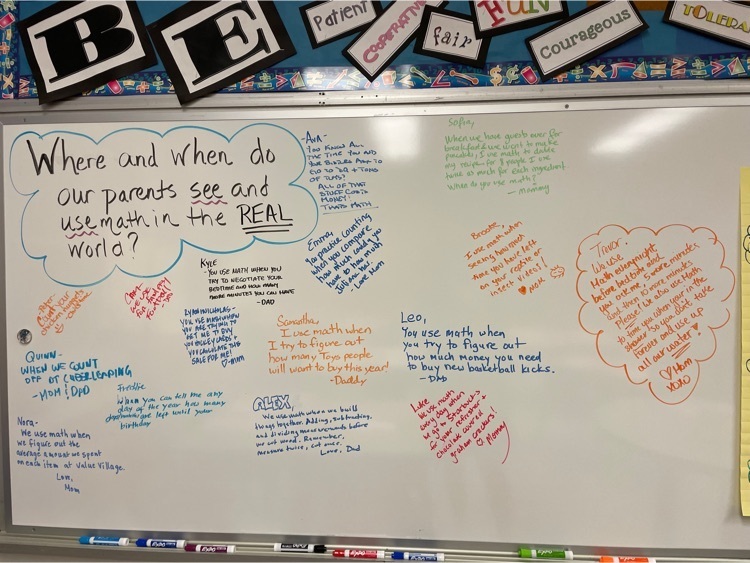 BE
Patient
COOPERATIVE
fair
FUN
Courageous
Where and when do
our parents see and
use math in the REAL
world?
AVA-
YOU KNOW ALL
THE TIME YOU AND
ALL OF THAT
STUFF COSTS
MONEY!
THATS MATH
Sofia,
When we have guests over for
breakfast & we want to make
pancakes, I use math to double
my recipe. For 8 people I use
twice as much for each ingredient.
When do you use math?
- Mommy
Emma,
You practice counting
when you compare
how much candy you
have to how much
Love Mom
Brooke,
I use math when
seeing how much
time you have left
on your
KYLE
- YOU USE MATH WHEN YOU
TRY TO NEGOTIATE YOUR
BEDTIME AND HOW MANY
MORE MINUTES YOU CAN HAVE
- DAD
YOU USE MATH WHEN
YOU ARE TRYING TO
GET ME TO BUY
YOU HOCKEY CARDS +
YOU CALCULATE THE
SALE FOR ME!
♡-MOM
Samantha
I use math when
I try to figure out
how many Toys people
will want to buy this year!
-Daddy
Leo,
You use math when
you try to figure out
how much money you need
to buy new basketball kicks.
- DAD
We use
Math every night
before bedtime and
you ask me 5 more minutes
and then 10 more minutes
Please! We also use Math
to time you when your in the
shower so you don't take
forever and use up
all our water
♡ Mom
XOXO
QUINN-
WHEN WE COUNT
OFF AT CHEERLEADING
-MOM & DAD
Freddie
When you can tell me any
day of the year how many
days are left until your
birthday
ALEX,
We use math when we build
things together. Adding, subtracting,
and dividing measurements before
we cut wood. Remember,
measure twice, cut once.
Love, Dad
Luke
We use math
every day when
we go to Starbucks
for your refresher +
chocolate covered
graham crackers!
♡ Mommy
Nora-
We use math when
we figure out the
average amount we spent
on each item at Value Village.
Love,
Mom
EXPO